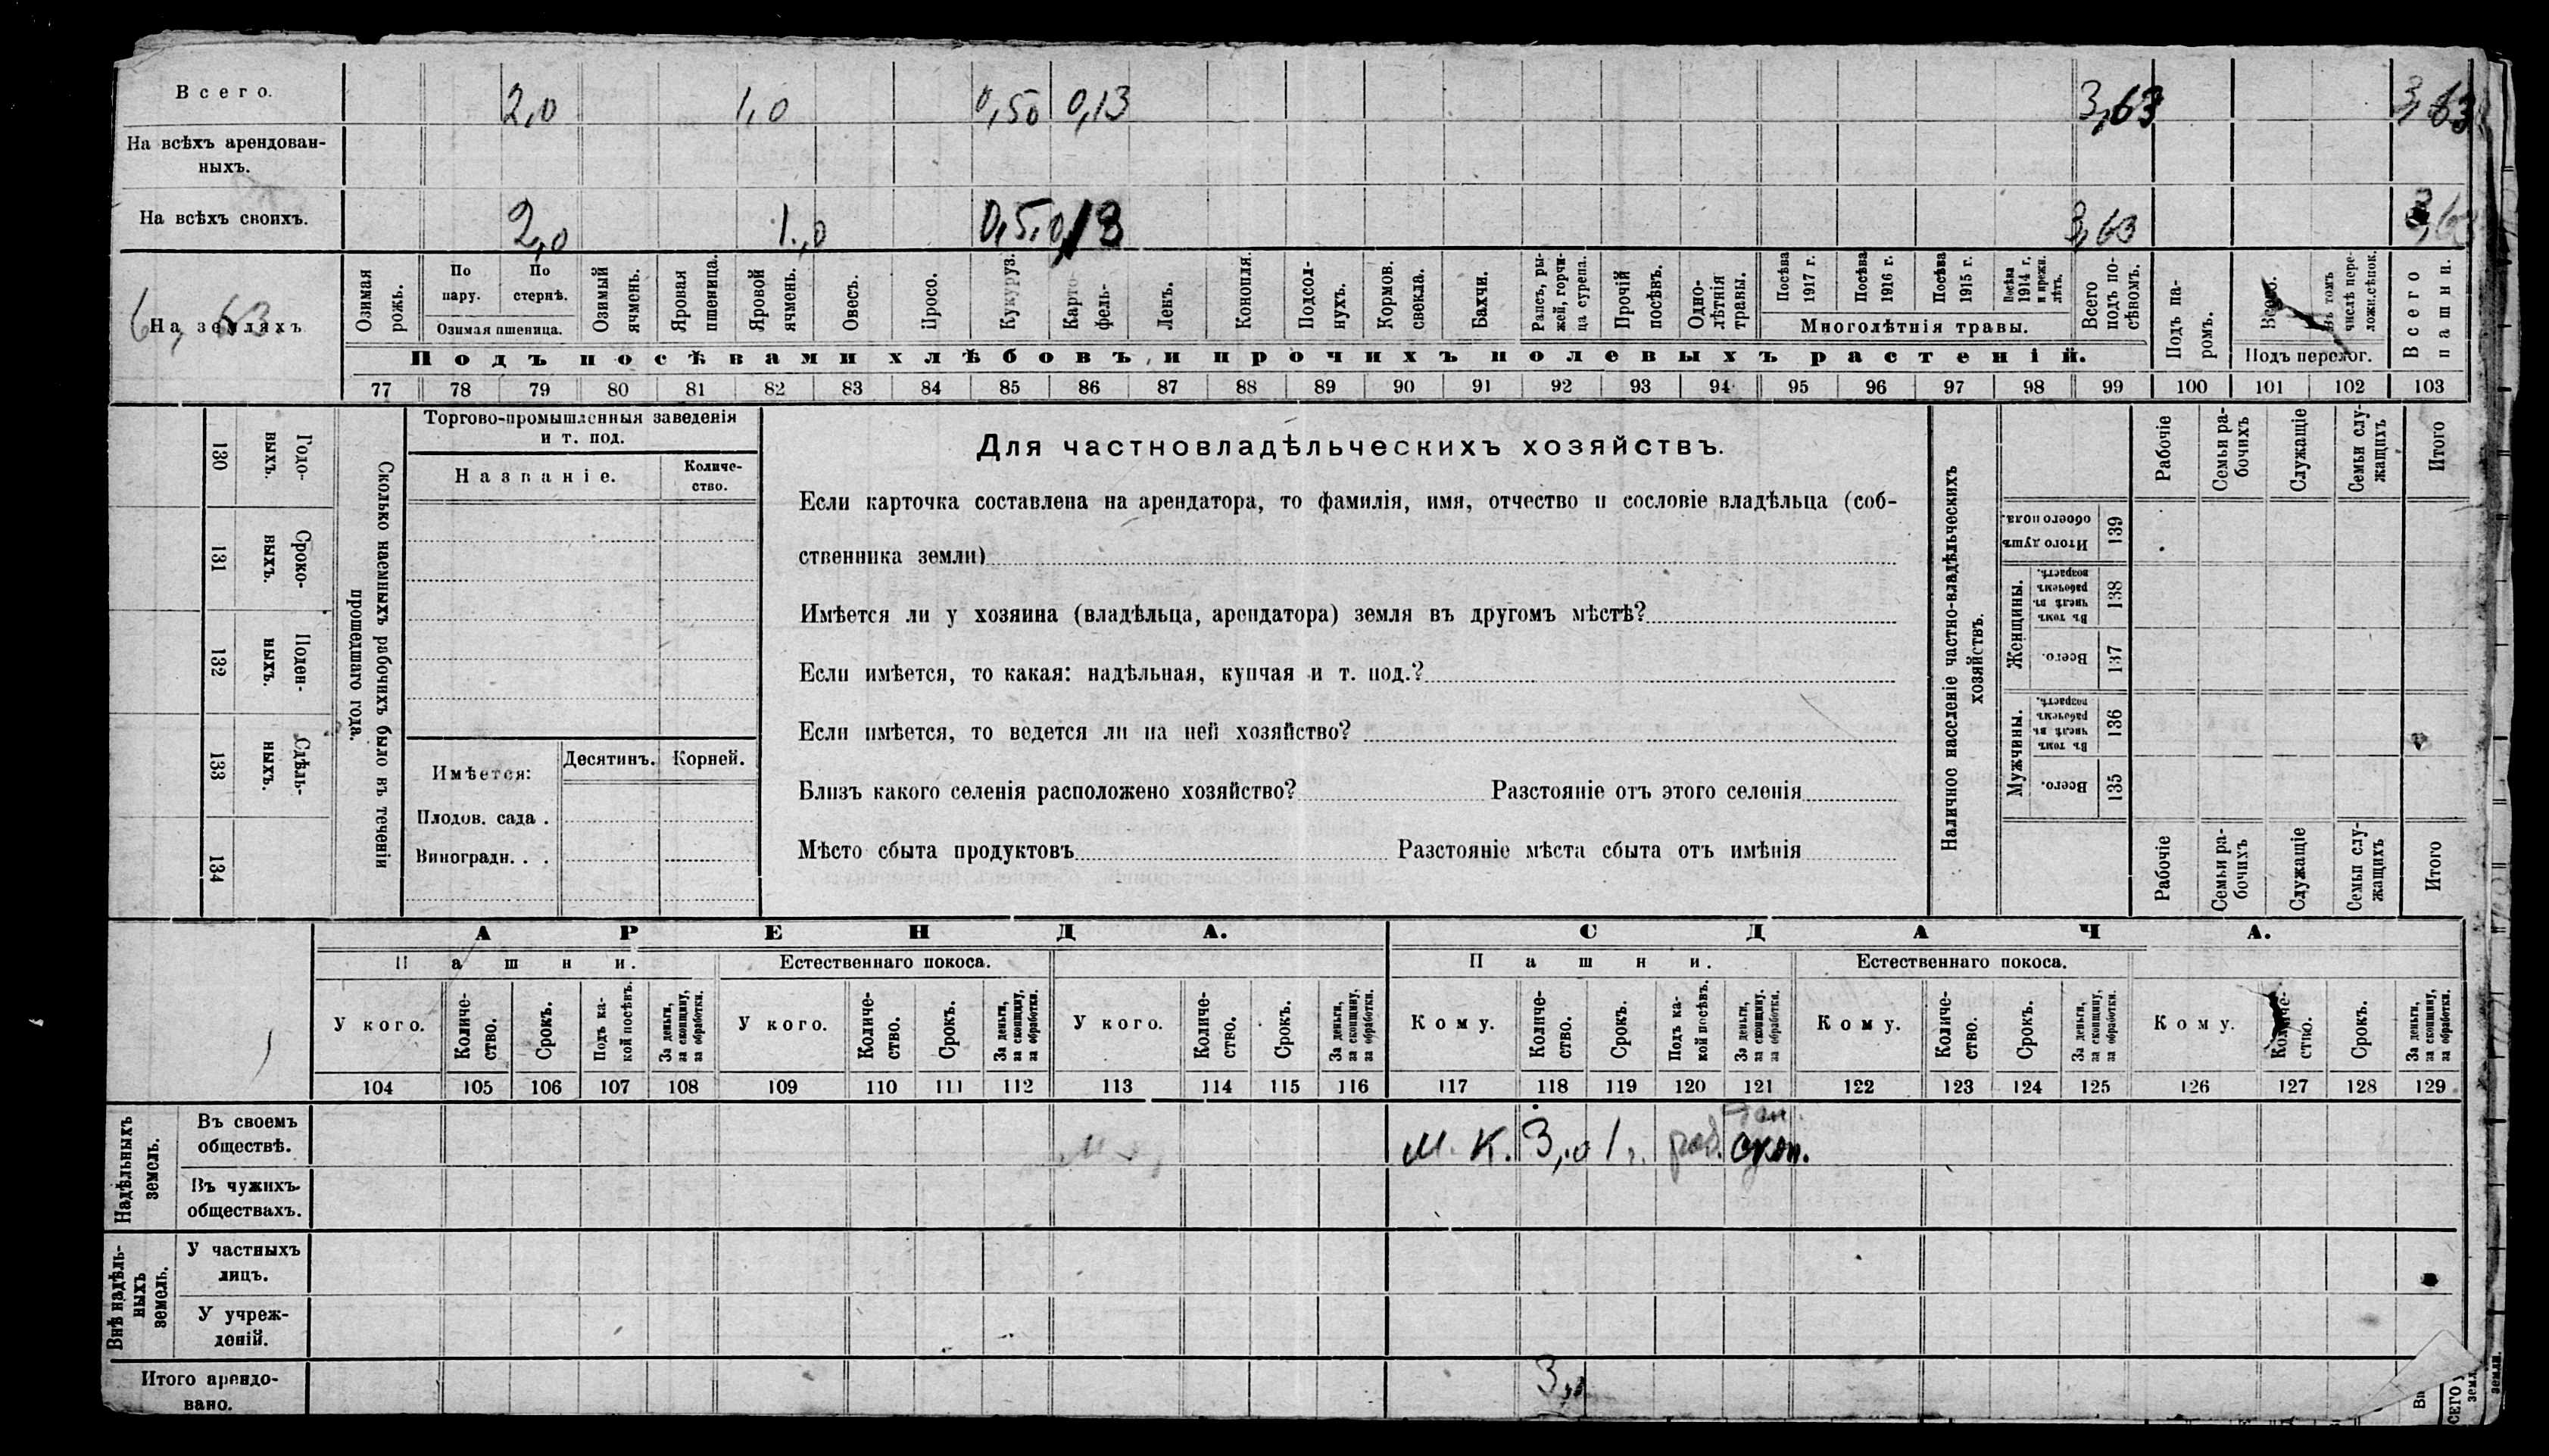 Всего. 2,0 1,0 0,50 0,13 3,63 3,63
На всѣхъ арендован-
ныхъ.
На всѣхъ своихъ. 2,0 1,0 0,5 0,13 3,63 3,63
На земляхъ 6,63
Озимая рожь.
По пару.
По стернѣ.
Озимая пшеница.
Озимый ячмень.
Яровая пшеница.
Яровой ячмень.
Овесъ.
Просо.
Кукуруз.
Картофель-
Ленъ.
Конопля.
Подсол-
нухъ.
Кормов. свекла.
Бахчи.
Рапсъ, ры-
жей, горчи-
ца сурепа.
Прочій посѣвъ.
Одно-
лѣтнія
травы.
Посѣва 1917 г.
Посѣва 1916 г.
Посѣва 1915 г.
Посѣва 1914 г. и прежн. лѣтъ.
Многолѣтнія травы.
Всего подъ по-
сѣвомъ.
Подъ посѣвами хлѣбовъ и прочихъ полевыхъ растеній.
Подъ па-
ромъ.
Всего.
Въ томъ числѣ пере-
ложн. сѣнок.
Подъ перелог.
Всего пашни.
77 78 79 80 81 82 83 84 85 86 87 88 89 90 91 92 93 94 95 96 97 98 99 100 101 102 103
130 Годо-
выхъ.
131 Сроко-
выхъ.
132 Поден-
ныхъ.
133 Сдѣль-
ныхъ.
134
Сколько наемныхъ рабочихъ было въ теченіи
прошедшаго года.
Торгово-промышленныя заведенія
и т. под.
Названіе.
Количе-
ство.
Имѣется:
Десятинъ. Корней.
Плодов. сада .
Виноградн. . .
Для частновладѣльческихъ хозяйствъ.
Если карточка составлена на арендатора, то фамилія, имя, отчество и сословіе владѣльца (соб-
ственника земли)
Имѣется ли у хозяина (владѣльца, арендатора) земля въ другомъ мѣстѣ?
Если имѣется, то какая: надѣльная, купчая и т. под.?
Если имѣется, то ведется ли на ней хозяйство?
Близъ какого селенія расположено хозяйство? Разстояніе отъ этого селенія
Мѣсто сбыта продуктовъ Разстояніе мѣста сбыта отъ имѣнія
Наличное населеніе частно-владѣльческихъ
хозяйствъ.
Рабочіе
Семьи ра-
бочихъ
Служащіе
Семьи слу-
жащихъ
Итого
Итого душъ
обоего пола.
139
Женщины.
Въ томъ числѣ въ рабочемъ возрастѣ.
138
Всего.
137
Мужчины.
Въ томъ числѣ въ рабочемъ возрастѣ.
136
Всего.
135
Рабочіе
Семьи ра-
бочихъ
Служащіе
Семьи слу-
жащихъ
Итого
АРЕНДА. СДАЧА.
Пашни. Естественнаго покоса. Пашни. Естественнаго покоса.
У кого. Количе-
ство. Срокъ. Подъ ка-
кой посѣвъ. За деньги,
за скопщину,
за обработки.
У кого. Количе-
ство. Срокъ. За деньги,
за скопщину,
за обработки.
У кого. Количе-
ство. Срокъ. За деньги,
за скопщину,
за обработки.
Кому. Количе-
ство. Срокъ. Подъ ка-
кой посѣвъ. За деньги,
за скопщину.
за обработки.
Кому. Количе-
ство. Срокъ. За деньги,
за скопщину,
за обработки.
Кому. Количе-
ство. Срокъ. За деньги,
за скопщину,
за обработки.
104 105 106 107 108 109 110 111 112 113 114 115 116 117 118 119 120 121 122 123 124 125 126 127 128 129
Надѣльныхъ
земель.
Въ своемъ
обществѣ.
м. к. 3,0 1 г. скоп.
Въ чужихъ
обществахъ.
Внѣ надѣль-
ныхъ
земель.
У частныхъ
лицъ.
У учреж-
деній.
Итого арендо-
вано.